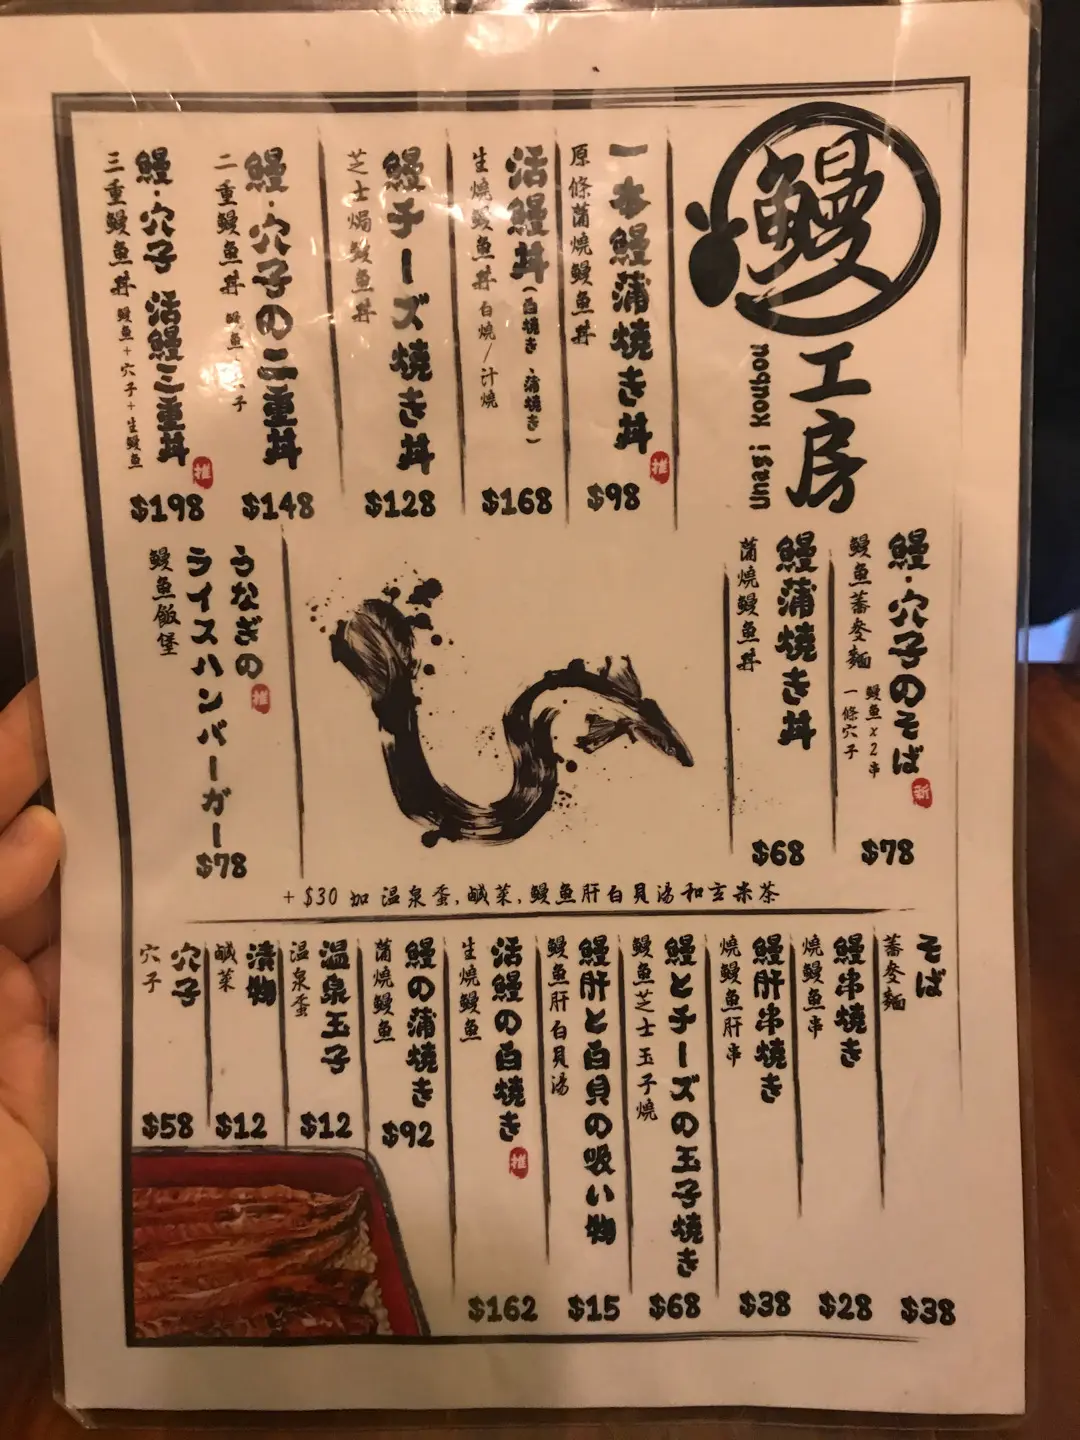 鰻
工房
Unagi Koubou
一本鰻蒲焼き丼
原條蒲燒鰻魚丼
推
$98
活鰻丼(白焼き、蒲焼き)
生燒鰻魚丼 白燒/汁燒
$168
鰻チーズ焼き丼
芝士焗鰻魚丼
$128
鰻・穴子の二重丼
二重鰻魚丼
$148
鰻・穴子 活鰻三重丼
三重鰻魚丼 鰻魚+穴子+生鰻魚
推
$198
鰻・穴子のそば
鰻魚蕎麥麵
鰻魚x2串
一條穴子
新
$78
鰻蒲焼き丼
蒲燒鰻魚丼
$68
うなぎの
ライスハンバーガー
鰻魚飯堡
推
$78
+$30 加 温泉蛋,鹹菜,鰻魚肝白貝湯和玄米茶
そば
蕎麥麵
$38
鰻串焼き
燒鰻魚串
$28
鰻肝串焼き
燒鰻魚肝串
$38
鰻とチーズの玉子焼き
鰻魚芝士玉子燒
$68
鰻肝と白貝の吸い物
鰻魚肝白貝湯
$15
活鰻の白焼き
生燒鰻魚
推
$162
鰻の蒲焼き
蒲燒鰻魚
$92
温泉玉子
温泉蛋
$12
漬物
鹹菜
$12
穴子
穴子
$58